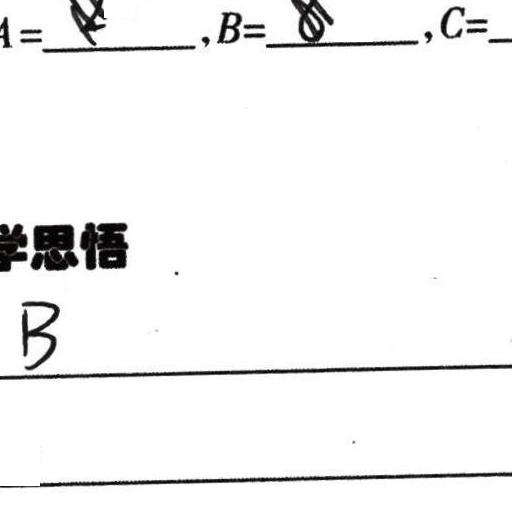 A=____,B=____,C=_
学思悟
B